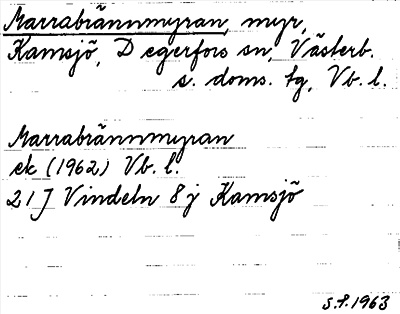 Marrabrännmyran, myr,
Kamsjö, Degerfors sn, Västerb.
s. doms. tg, Vb. l.
Marrabrännmyran
ek (1962) Vb. l.
21J Vindeln 8j Kamsjö
s.f. 1963